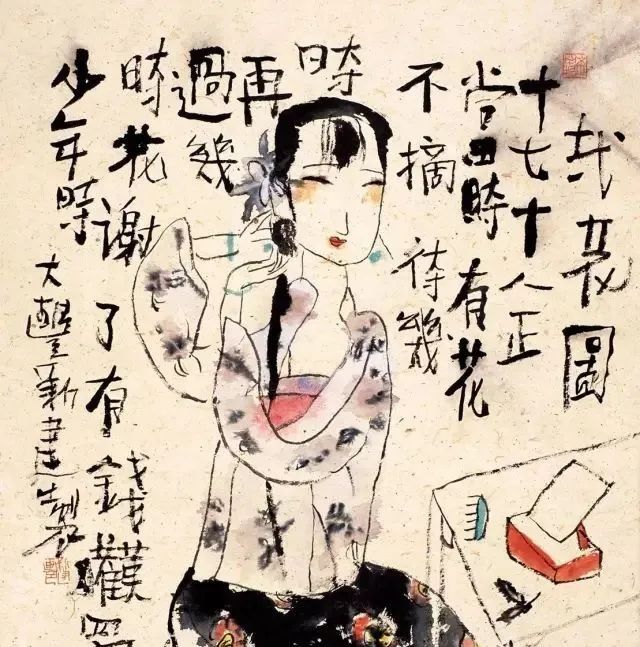 圖
十七十八正
當時有花
不摘待幾
時
再
過幾
時花谢了有錢難
少年時
大豐新建製